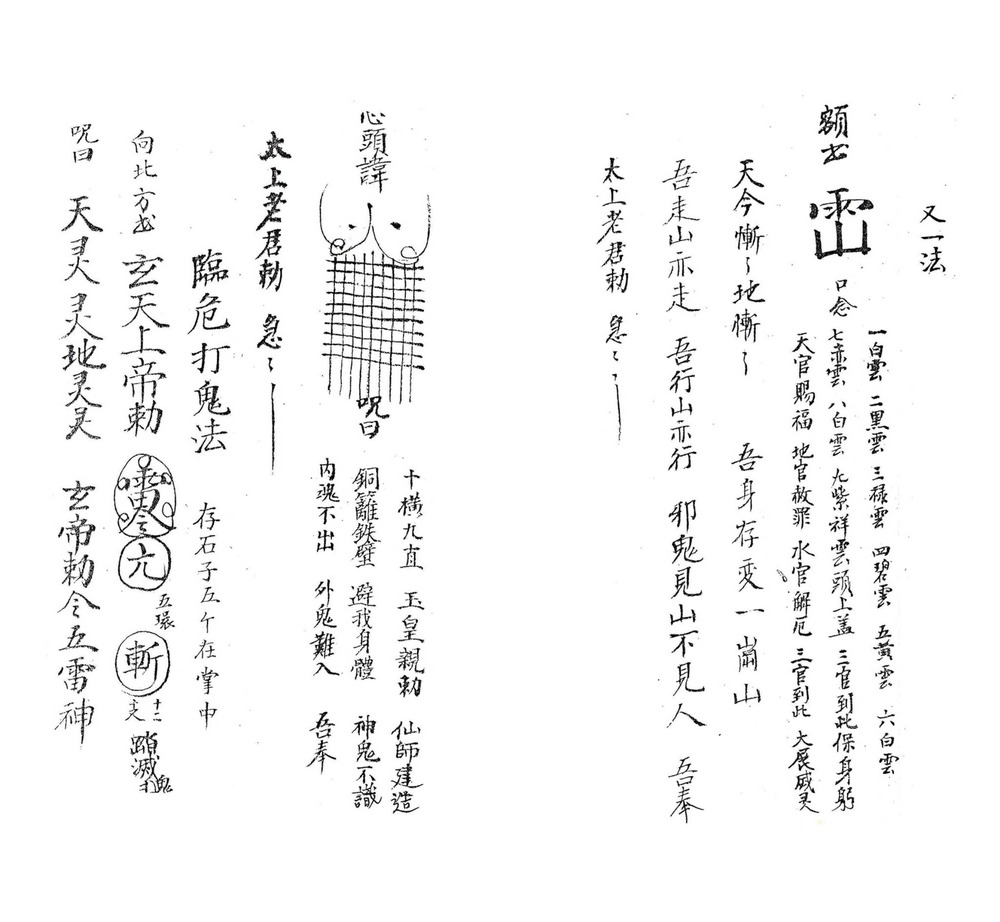 又一法
額书 𩂣 口念
一白雲 二黑雲 三禄雲 四碧雲 五黄雲 六白雲
七赤雲 八白雲 九紫祥雲頭上盖 三官到此保身躬
天官賜福 地官赦罪 水官解厄 三官到此 大展威灵
天今慚〻地慚〻 吾身存变一崗山
吾走山亦走 吾行山亦行 邪鬼見山不見人 吾奉
太上老君勅 急〻
心頭諱
咒曰
十橫九直 玉皇親勅 仙師建造
銅籬鉄壁 避我身體 神鬼不識
内魂不出 外鬼難入 吾奉
太上老君勅 急〻
臨危打鬼法 存石子五个在掌中
向北方书 玄天上帝勅
亢 五環 斬 十二 滅 鬼
咒曰 天灵灵地灵灵 玄帝勅令五雷神